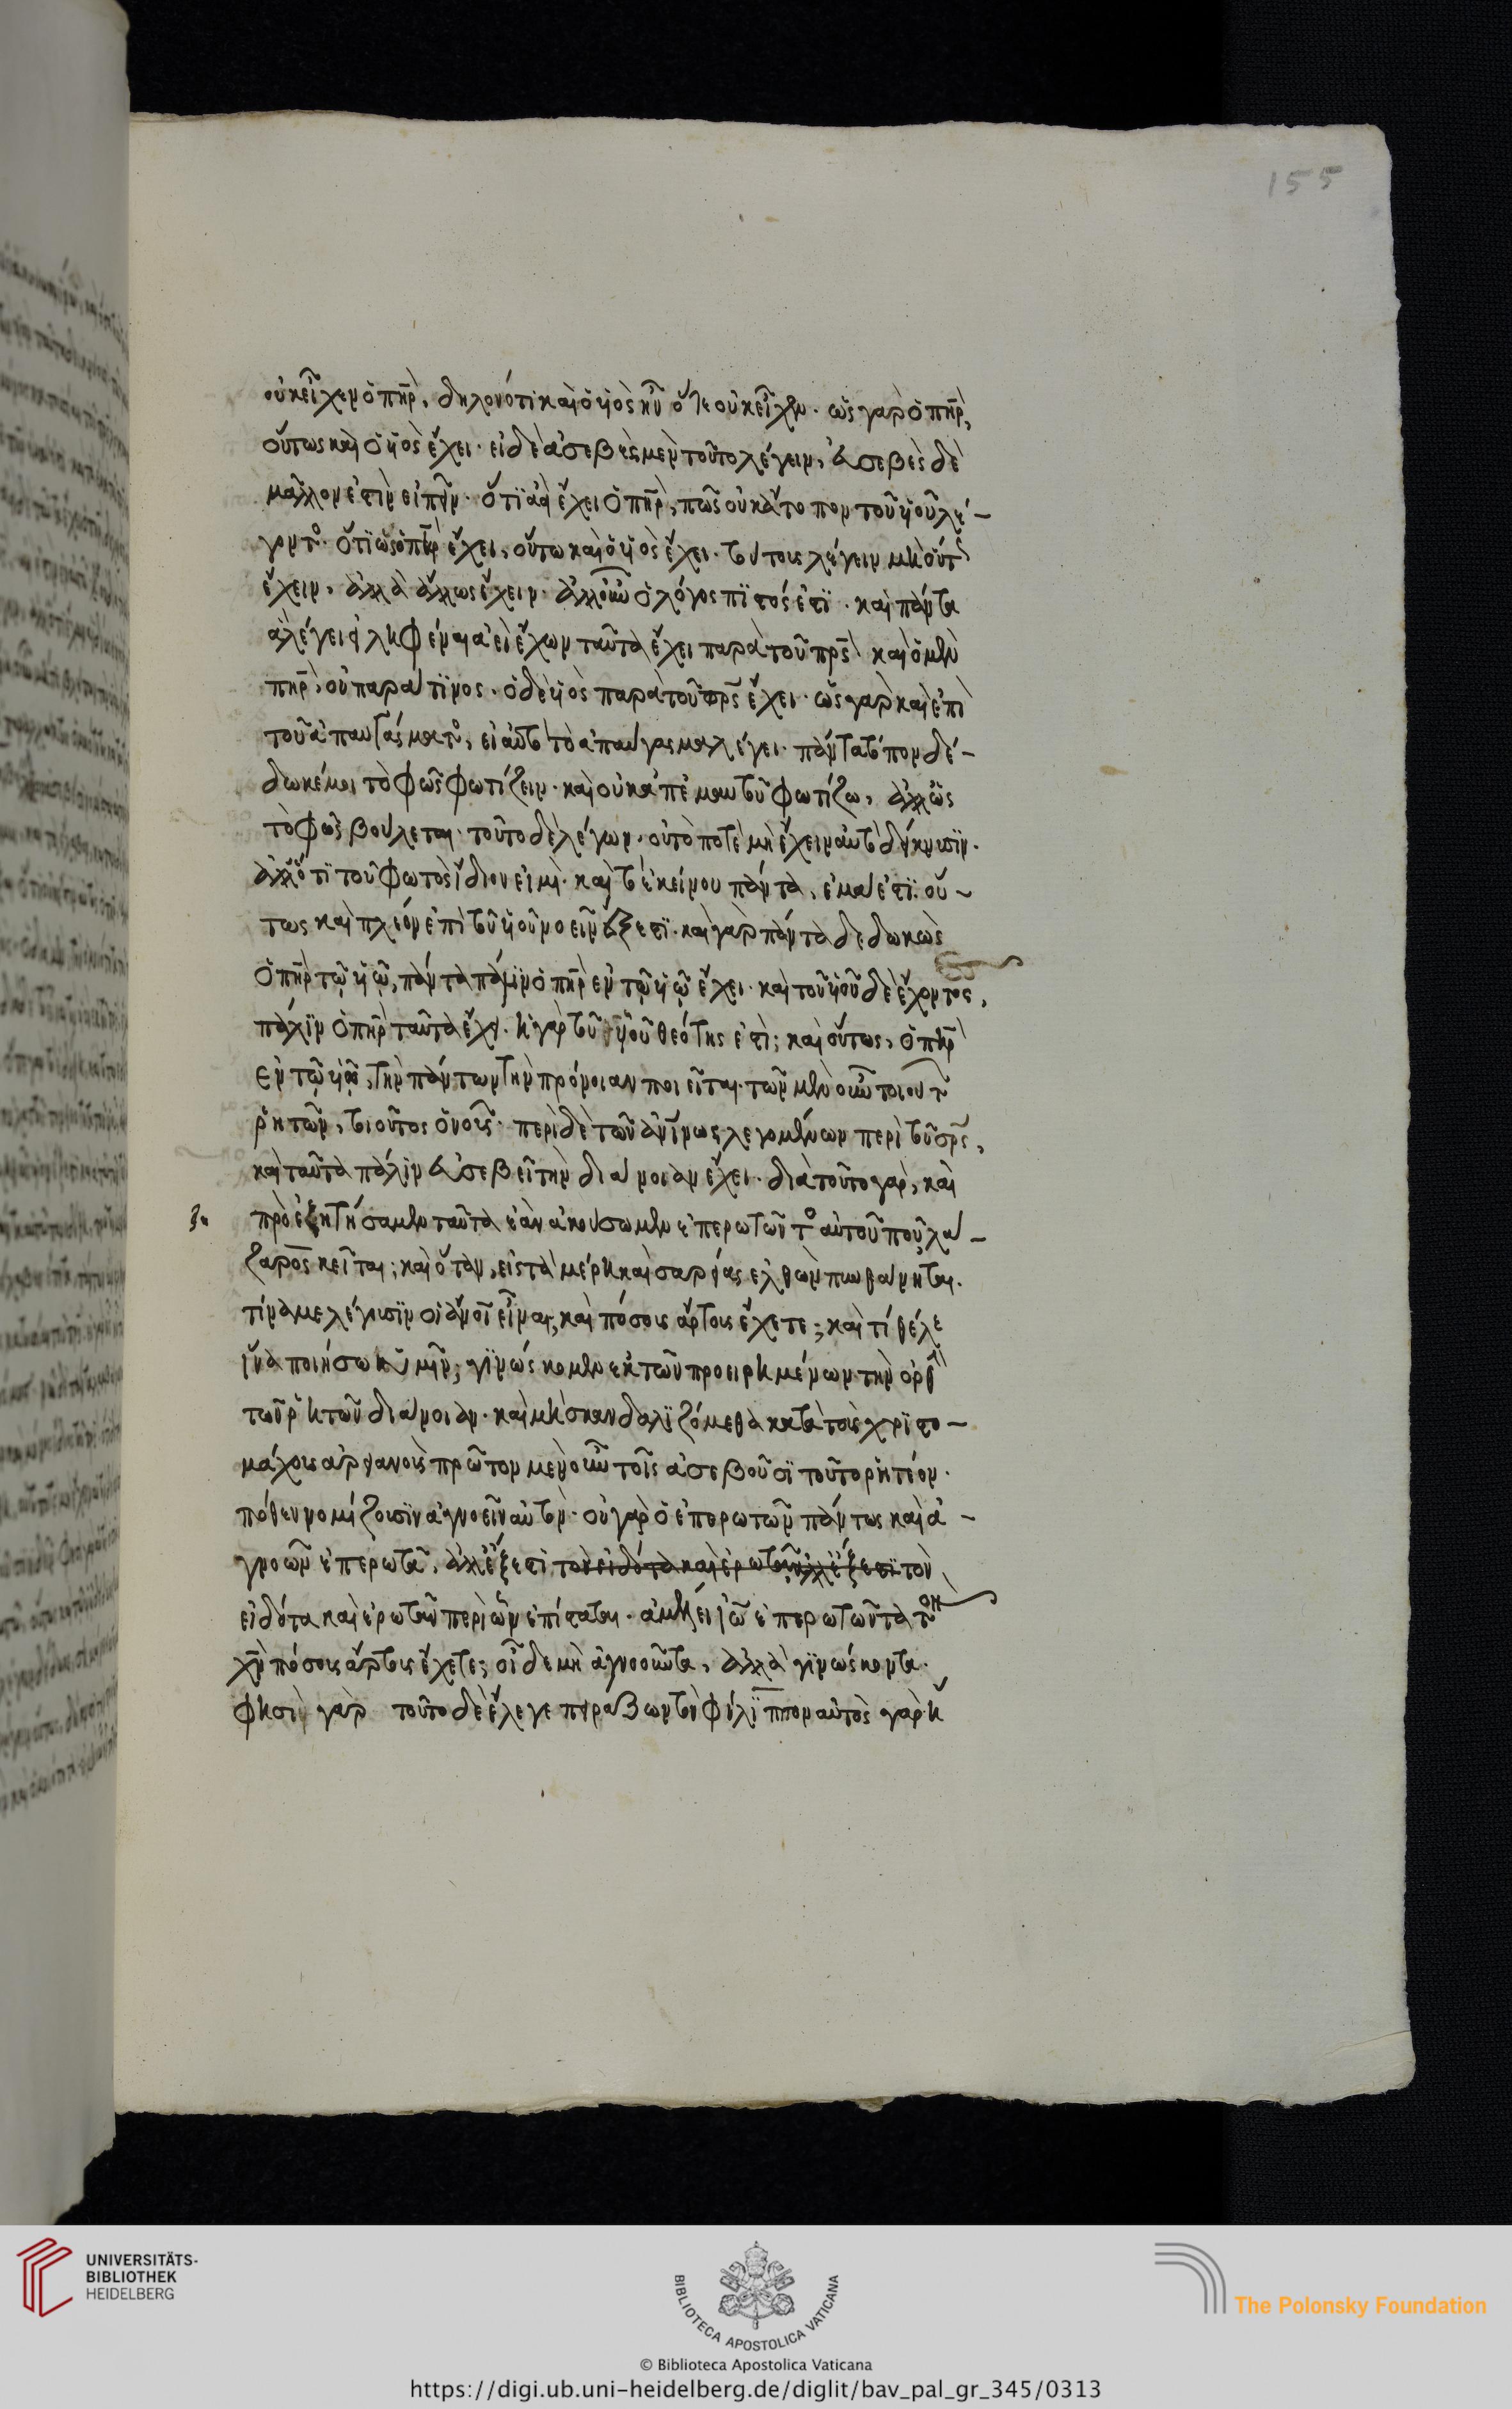 155
οὐκ εἶχεν ὁ πηρ, δηλονότι καὶ ὁ υἱὸς ἦν ὅτε οὐκ εἶχεν. ὡς γὰρ ὁ πηρ,
οὕτως καὶ ὁ υἱὸς ἔχει. εἰ δὲ ἀσεβὲς μὲν τοῦτο λέγειν, ἀσεβὲς δὲ
μᾶλλον ἐστὶν εἰπεῖν. ὅτι ἀεὶ ἔχει ὁ πηρ, πῶς οὐκ ἄτοπον τοῦ υἱοῦ λέ-
γοντος. ὅτι ὡς ὁ πηρ ἔχει, οὕτω καὶ ὁ υἱὸς ἔχει. τούτους λέγειν μὴ οὕτως
ἔχειν, ἀλλὰ ἄλλως ἔχειν. ἀλλ' οὖν ὁ λόγος πιστός ἐστι. καὶ πάντα
ἃ λέγει εἰληφέναι ἀεὶ ἔχων ταῦτα ἔχει παρὰ τοῦ πρς καὶ ὁ μὲν
πηρ, οὐ παρά τινος. ὁ δὲ υἱὸς παρὰ τοῦ πρς ἔχει. ὡς γὰρ καὶ ἐπὶ
τοῦ ἀπαυγάσματος, εἰ αὐτὸ τὸ ἀπαύγασμα λέγει. πάντα τόπον δέ-
δωκέ μοι τὸ φῶς φωτίζειν. καὶ οὐκ ἀπ' ἐμαυτοῦ φωτίζω, ἀλλ' ὡς
τὸ φῶς βούλεται. τοῦτο δὲ λέγων, οὐ τό ποτε μὴ ἔχειν αὐτὸ δείκνυσιν.
ἀλλ' ὅτι τοῦ φωτὸς ἴδιον εἰμί. καὶ τὰ ἐκείνου πάντα, ἐμά ἐστι. οὕ-
τως καὶ πλεῖον ἐπὶ τοῦ υἱοῦ νοεῖν ἔξεστι. καὶ γὰρ πάντα δεδωκὼς
ὁ πηρ τῷ υἱῷ, πάντα πάλιν ὁ πηρ ἐν τῷ υἱῷ ἔχει. καὶ τοῦ υἱοῦ δὲ ἔχοντος,
πάλιν ὁ πηρ ταῦτα ἔχει. ἡ γὰρ τοῦ υἱοῦ θεότης ἐστὶ; καὶ οὕτως, ὁ πηρ
ἐν τῷ υἱῷ, τὴν πάντων τὴν πρόνοιαν ποιεῖται. τῶν μὲν οὖν τοιούτων
ῥητῶν, τοιοῦτος ὁ νοῦς. περὶ δὲ τῶν ἀνπίνως λεγομένων περὶ τοῦ σρς,
καὶ ταῦτα πάλιν εὐσεβῆ τὴν διάνοιαν ἔχει. διὰ τοῦτο γὰρ, καὶ
προεξητήσαμεν ταῦτα ἐὰν ἀκούσωμεν ἐπερωτῶντος αὐτοῦ ποῦ λά-
ζαρος κεῖται; καὶ ὅταν, εἰς τὰ μέρη καισαρείας ἐλθὼν πυνθάνηται.
τίνα με λέγουσιν οἱ ἄνοι εἶναι; καὶ πόσους ἄρτους ἔχετε; καὶ τί θέλετε
ἵνα ποιήσω ὑμῖν; γινώσκομεν ἐκ τῶν προειρημένων τὴν ὀρθὴν
τῶν ῥητῶν διάνοιαν. καὶ μὴ σκανδαλιζόμεθα κατὰ τοὺς χριστο-
μάχους ἀρειανοὺς πρῶτον μὲν οὖν τοῖς ἀσεβοῦσι τοῦτο ῥητέον.
πόθεν νομίζουσιν ἀγνοεῖν αὐτόν. οὐ γὰρ ὁ ἐπερωτῶν πάντως καὶ ἀ-
γνοῶν ἐπερωτᾶ. ἀλλ' ἔξεστι τὸν εἰδότα καὶ ἐρωτᾶν ἀλλ' ἔξεστι τὸν
εἰδότα καὶ ἐρωτᾶν περὶ ὧν ἐπίσταται. ἀμέλει ἰω ἐπερωτῶντα τὸν
χν πόσους ἄρτους ἔχετε; οἶδε μὴ ἀγνοοῦντα, ἀλλὰ γινώσκοντα.
φησὶ γὰρ τοῦτο δὲ ἔλεγε πειράζων τὸν φίλιππον αὐτὸς γὰρ ἤ
UNIVERSITÄTS-
BIBLIOTHEK
HEIDELBERG
BIBLIOTECA APOSTOLICA VATICANA
The Polonsky Foundation
© Biblioteca Apostolica Vaticana
https://digi.ub.uni-heidelberg.de/diglit/bav_pal_gr_345/0313